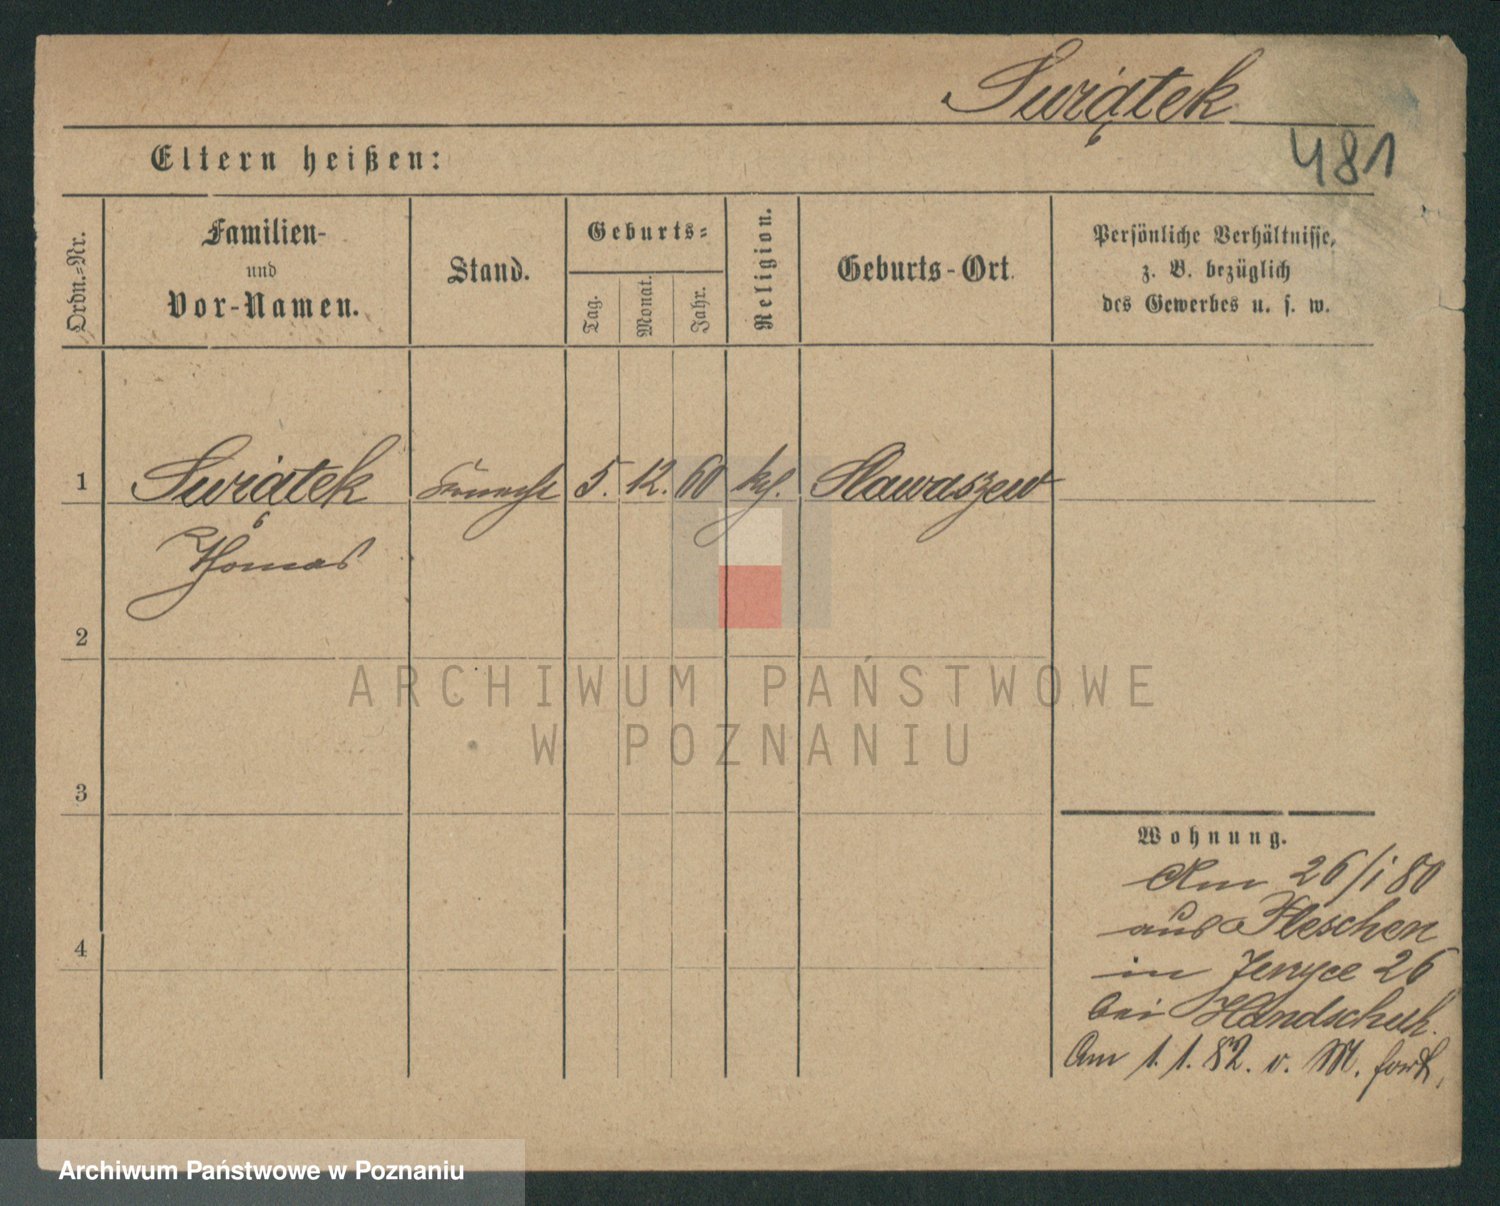 Swiątek
481
Eltern heißen:
Ordn.=Nr.
Familien-
und
Vor-Namen.
Stand.
Geburts=
Tag.
Monat.
Jahr.
Religion.
Geburts-Ort
Persönliche Verhältnisse,
z. B. bezüglich
des Gewerbes u. s. w.
1 Swiątek Knecht 5. 12. 60 kth. Slawaszew
Thomas
2
3
4
Wohnung.
Am 26/1 80
aus Pleschen
in Jenyce 26
bei Handschuh.
Am 1. 1. 82. v. M. fort.
ARCHIWUM PAŃSTWOWE
W POZNANIU
Archiwum Państwowe w Poznaniu